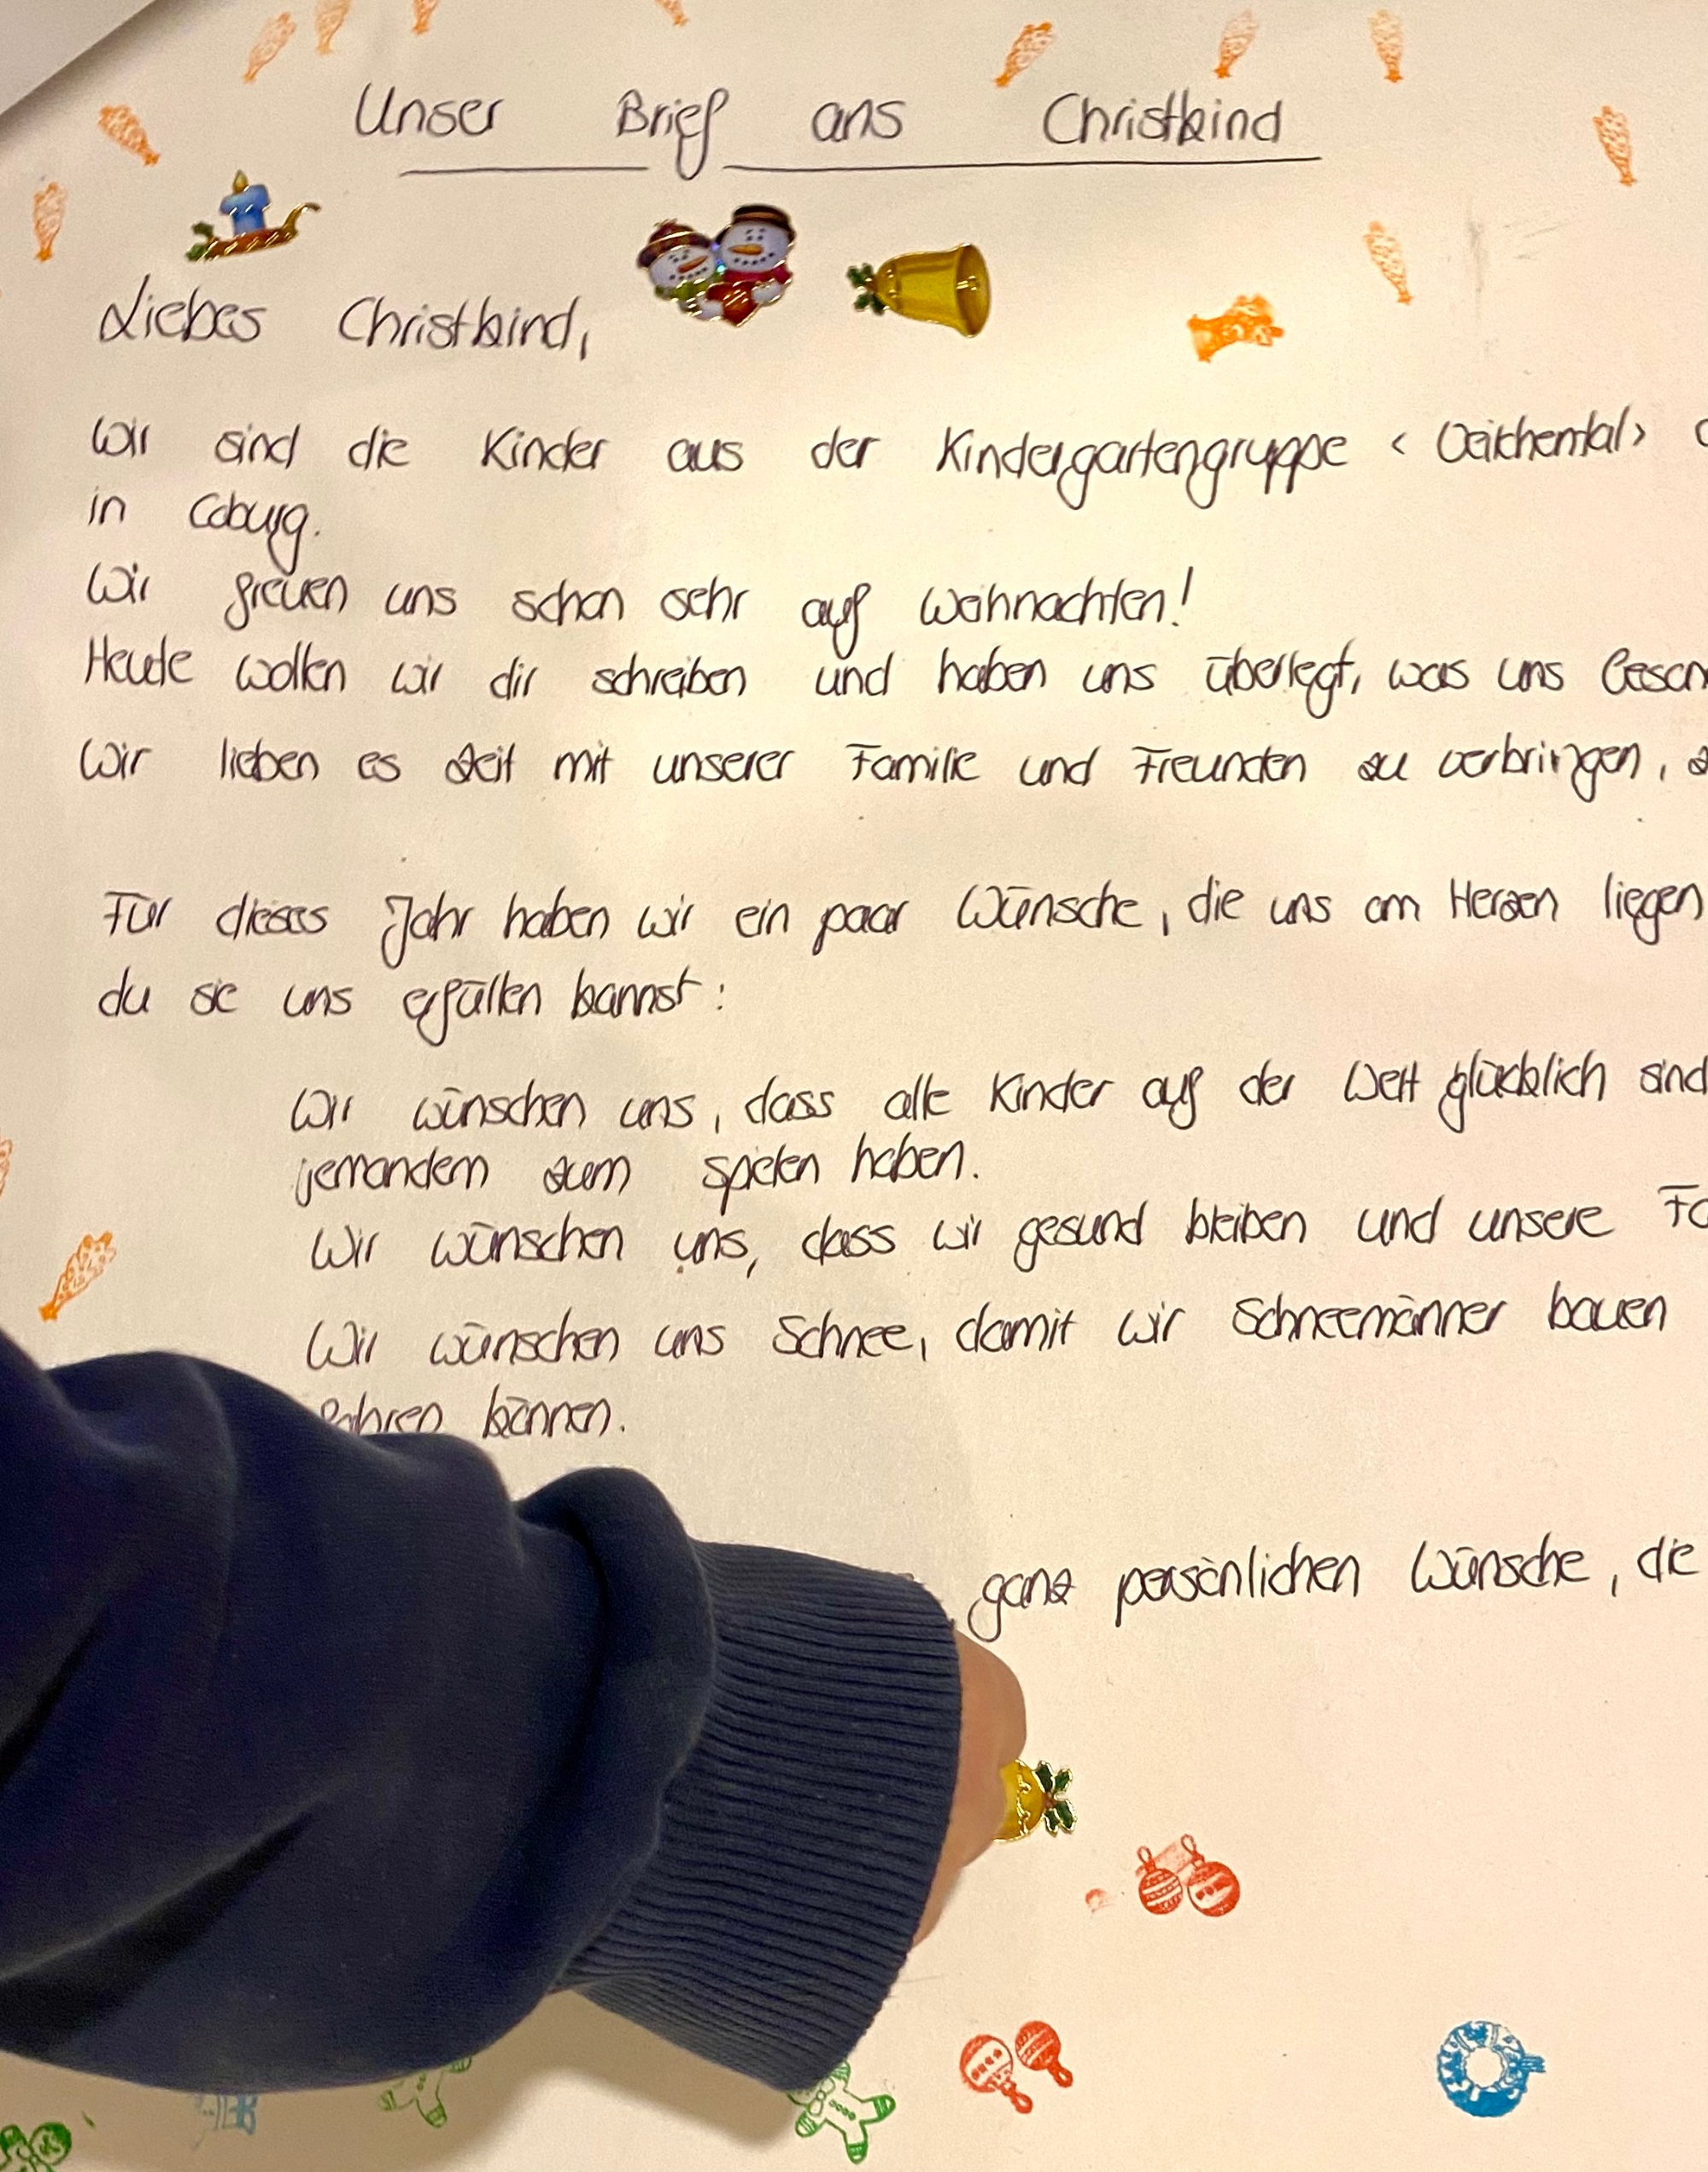 Unser Brief ans Christkind
Liebes Christkind,
Wir sind die Kinder aus der Kindergartengruppe < Veilchental>
in Coburg.
Wir freuen uns schon sehr auf Weihnachten!
Heute wollen wir dir schreiben und haben uns überlegt, was uns
Wir lieben es Zeit mit unserer Familie und Freunden zu verbringen,
Für dieses Jahr haben wir ein paar Wünsche, die uns am Herzen liegen
du sie uns erfüllen kannst:
Wir wünschen uns, dass alle Kinder auf der Welt glücklich sind
jemandem zum spielen haben.
Wir wünschen uns, dass wir gesund bleiben und unsere
Wir wünschen uns Schnee, damit wir Schneemänner bauen
fahren können.
ganz persönlichen Wünsche, die